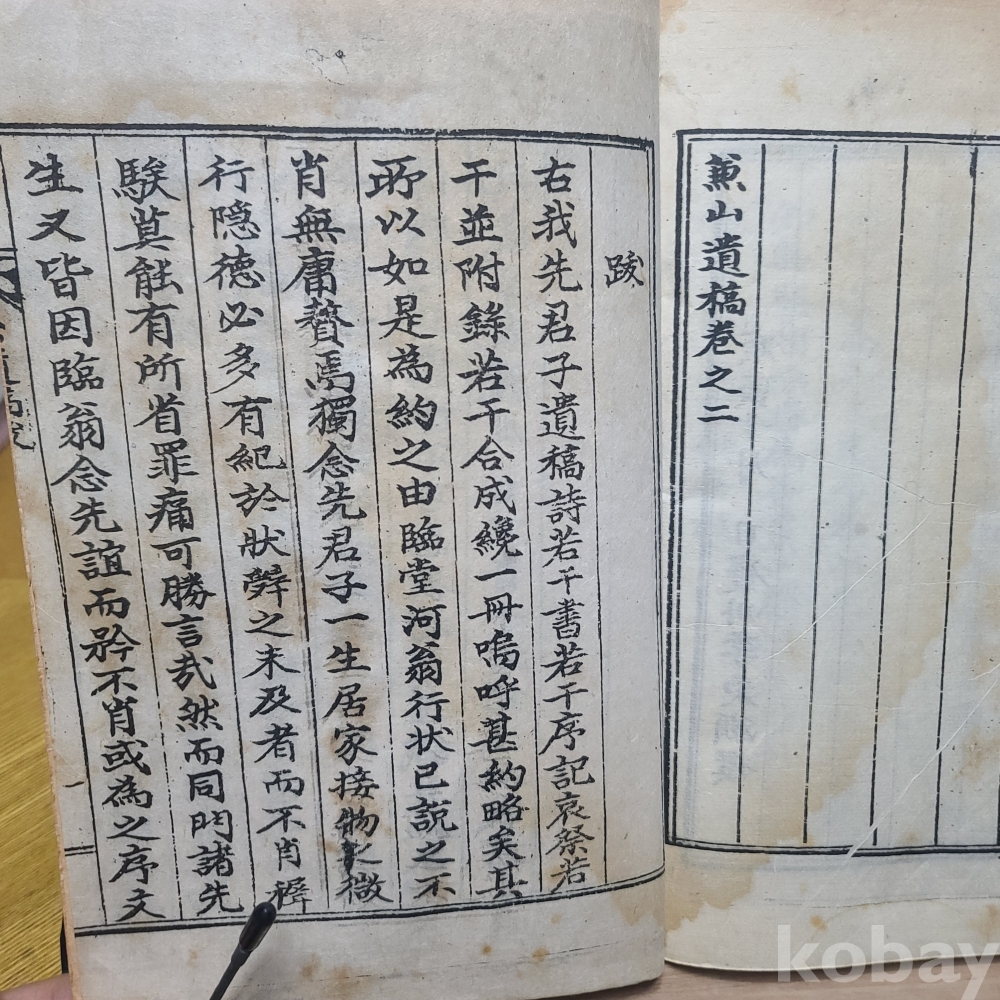 兼山遺稿卷之二
跋
右我先君子遺稿詩若干書若干序記哀祭若
干並附錄若干合成纔一冊嗚呼甚約略矣其
所以如是為約之由臨堂河翁行状已説之不
肖無庸贅焉獨念先君子一生居家接物之微
行隱德必多有紀於狀辭之未及者而不肖穉
騃莫能有所省罪痛可勝言哉然而同門諸先
生又皆因臨翁念先誼而矜不肖或為之序文
kobay